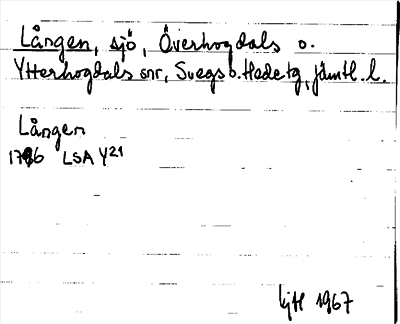 Lången, sjö, Överhogdals o.
Ytterhogdals snr, Svegs o. Hede tg, Jämtl. l.
Lången
LSA Y21
1967